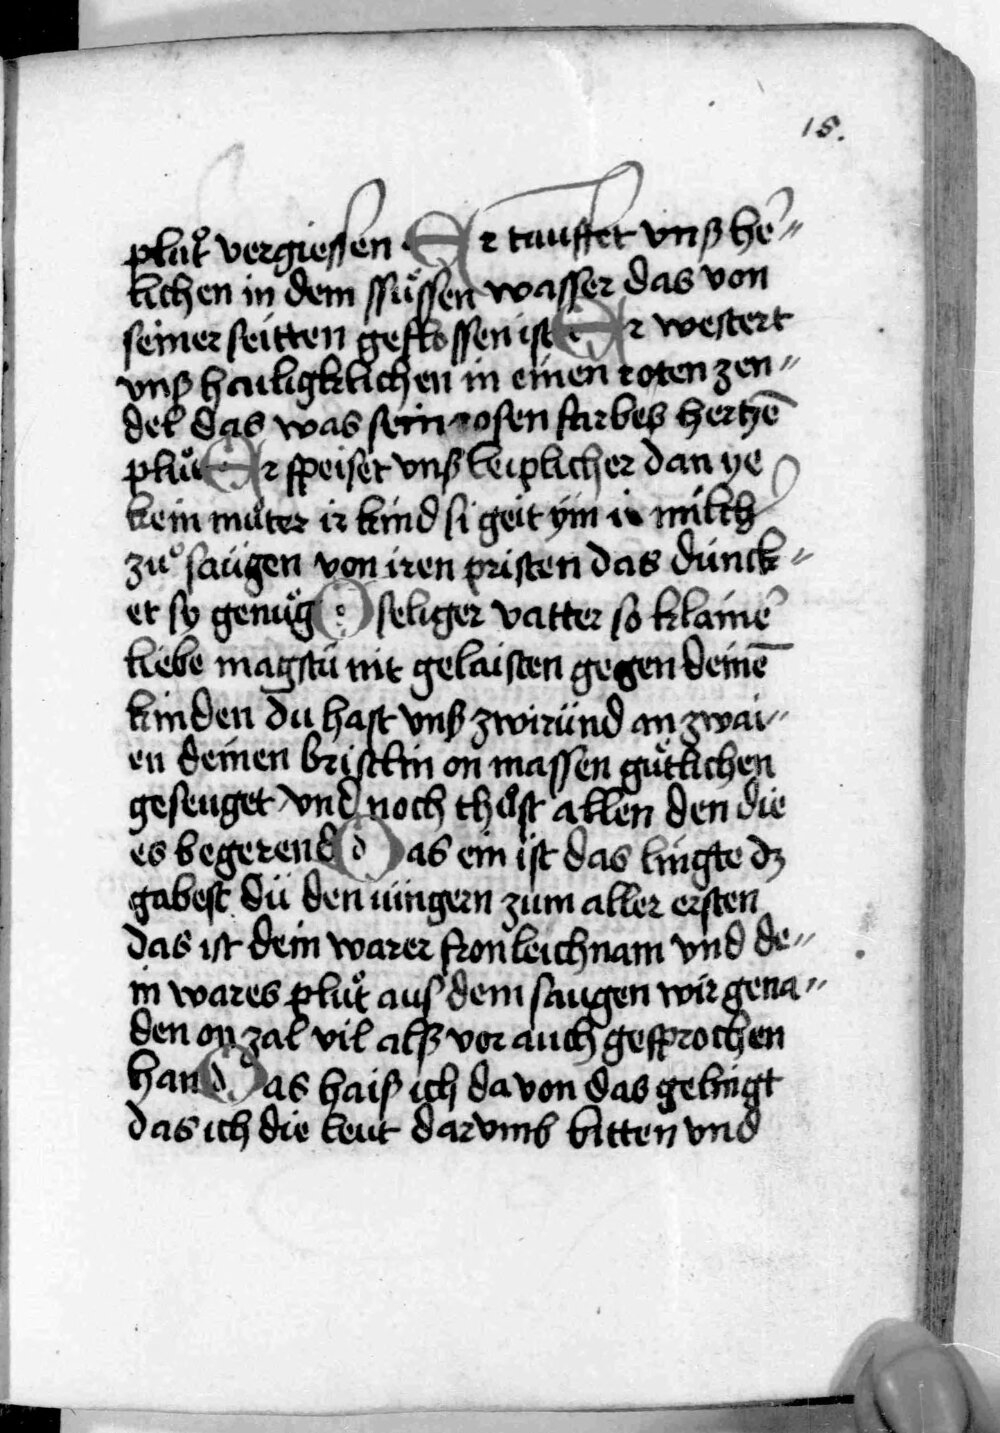 18.
plůt vergiessen Er tauffet vnß he᷑⸗
lichen in dem ssůssen wasser das von
seiner seitten geflossen ist Er westert
vnß hailigklichen in einen roten zen⸗
del das was sein rosen farbes hertzē
plůt Er speiset vnß leiplicher dan ye
kein můter ir kind si geit ym ir milch
zuͦ saügen von iren pristen das dunck⸗
et sy genůg O seliger vatter so klaine᷑
liebe magstu nit gelaisten gegen deinē
kinden du hast vnß zwiründ an zwai⸗
en deinen bristlin on massen gůtlichen
geseuget vnd noch thůst allen den die
es begerend Das ein ist das lingte dz
gabest dü den iüngern zum aller ersten
das ist dein warer fronleichnam vnd de⸗
in wares plůt aus dem saugen wir gena⸗
den on zal vil alß vor auch gesprochen
han Das haiß ich da von das gelingt
das ich die leut darvmb bitten vnd